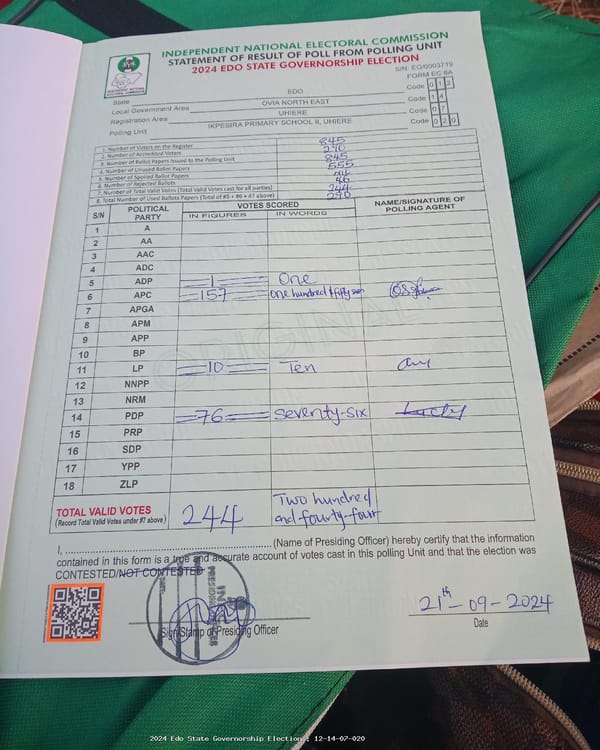 INDEPENDENT NATIONAL ELECTORAL COMMISSION
STATEMENT OF RESULT OF POLL FROM POLLING UNIT
2024 EDO STATE GOVERNORSHIP ELECTION
S/N: EG/0003719
FORM EC 8A
State EDO Code 1 2
Local Government Area OVIA NORTH EAST Code 1 4
Registration Area UHIERE Code 0 7
Polling Unit IKPESIRA PRIMARY SCHOOL II, UHIERE Code 0 2 0
1. Number of Voters on the Register 845
2. Number of Accredited Voters 290
3. Number of Ballot Papers Issued to the Polling Unit 845
4. Number of Unused Ballot Papers 555
5. Number of Spoiled Ballot Papers
6. Number of Rejected Ballots 46
7. Number of Total Valid Votes (Total Valid Votes cast for all parties) 244
8. Total Number of Used Ballots Papers (Total of #5 + #6 + #7 above) 290
S/N POLITICAL PARTY VOTES SCORED NAME/SIGNATURE OF POLLING AGENT
IN FIGURES IN WORDS
1 A
2 AA
3 AAC
4 ADC
5 ADP 1 One
6 APC 157 One hundred & fifty seven
7 APGA
8 APM
9 APP
10 BP
11 LP 10 Ten
12 NNPP
13 NRM
14 PDP 76 Seventy-six Lucky
15 PRP
16 SDP
17 YPP
18 ZLP
ORIGINAL
TOTAL VALID VOTES 244 Two hundred and fourty-four
(Record Total Valid Votes under #7 above)
I, ........................ (Name of Presiding Officer) hereby certify that the information
contained in this form is a true and accurate account of votes cast in this polling Unit and that the election was
CONTESTED/NOT CONTESTED
INEC
PRESIDING OFFICER
21th-09-2024
Sign/Stamp of Presiding Officer Date
2024 Edo State Governorship Election : 12-14-07-020